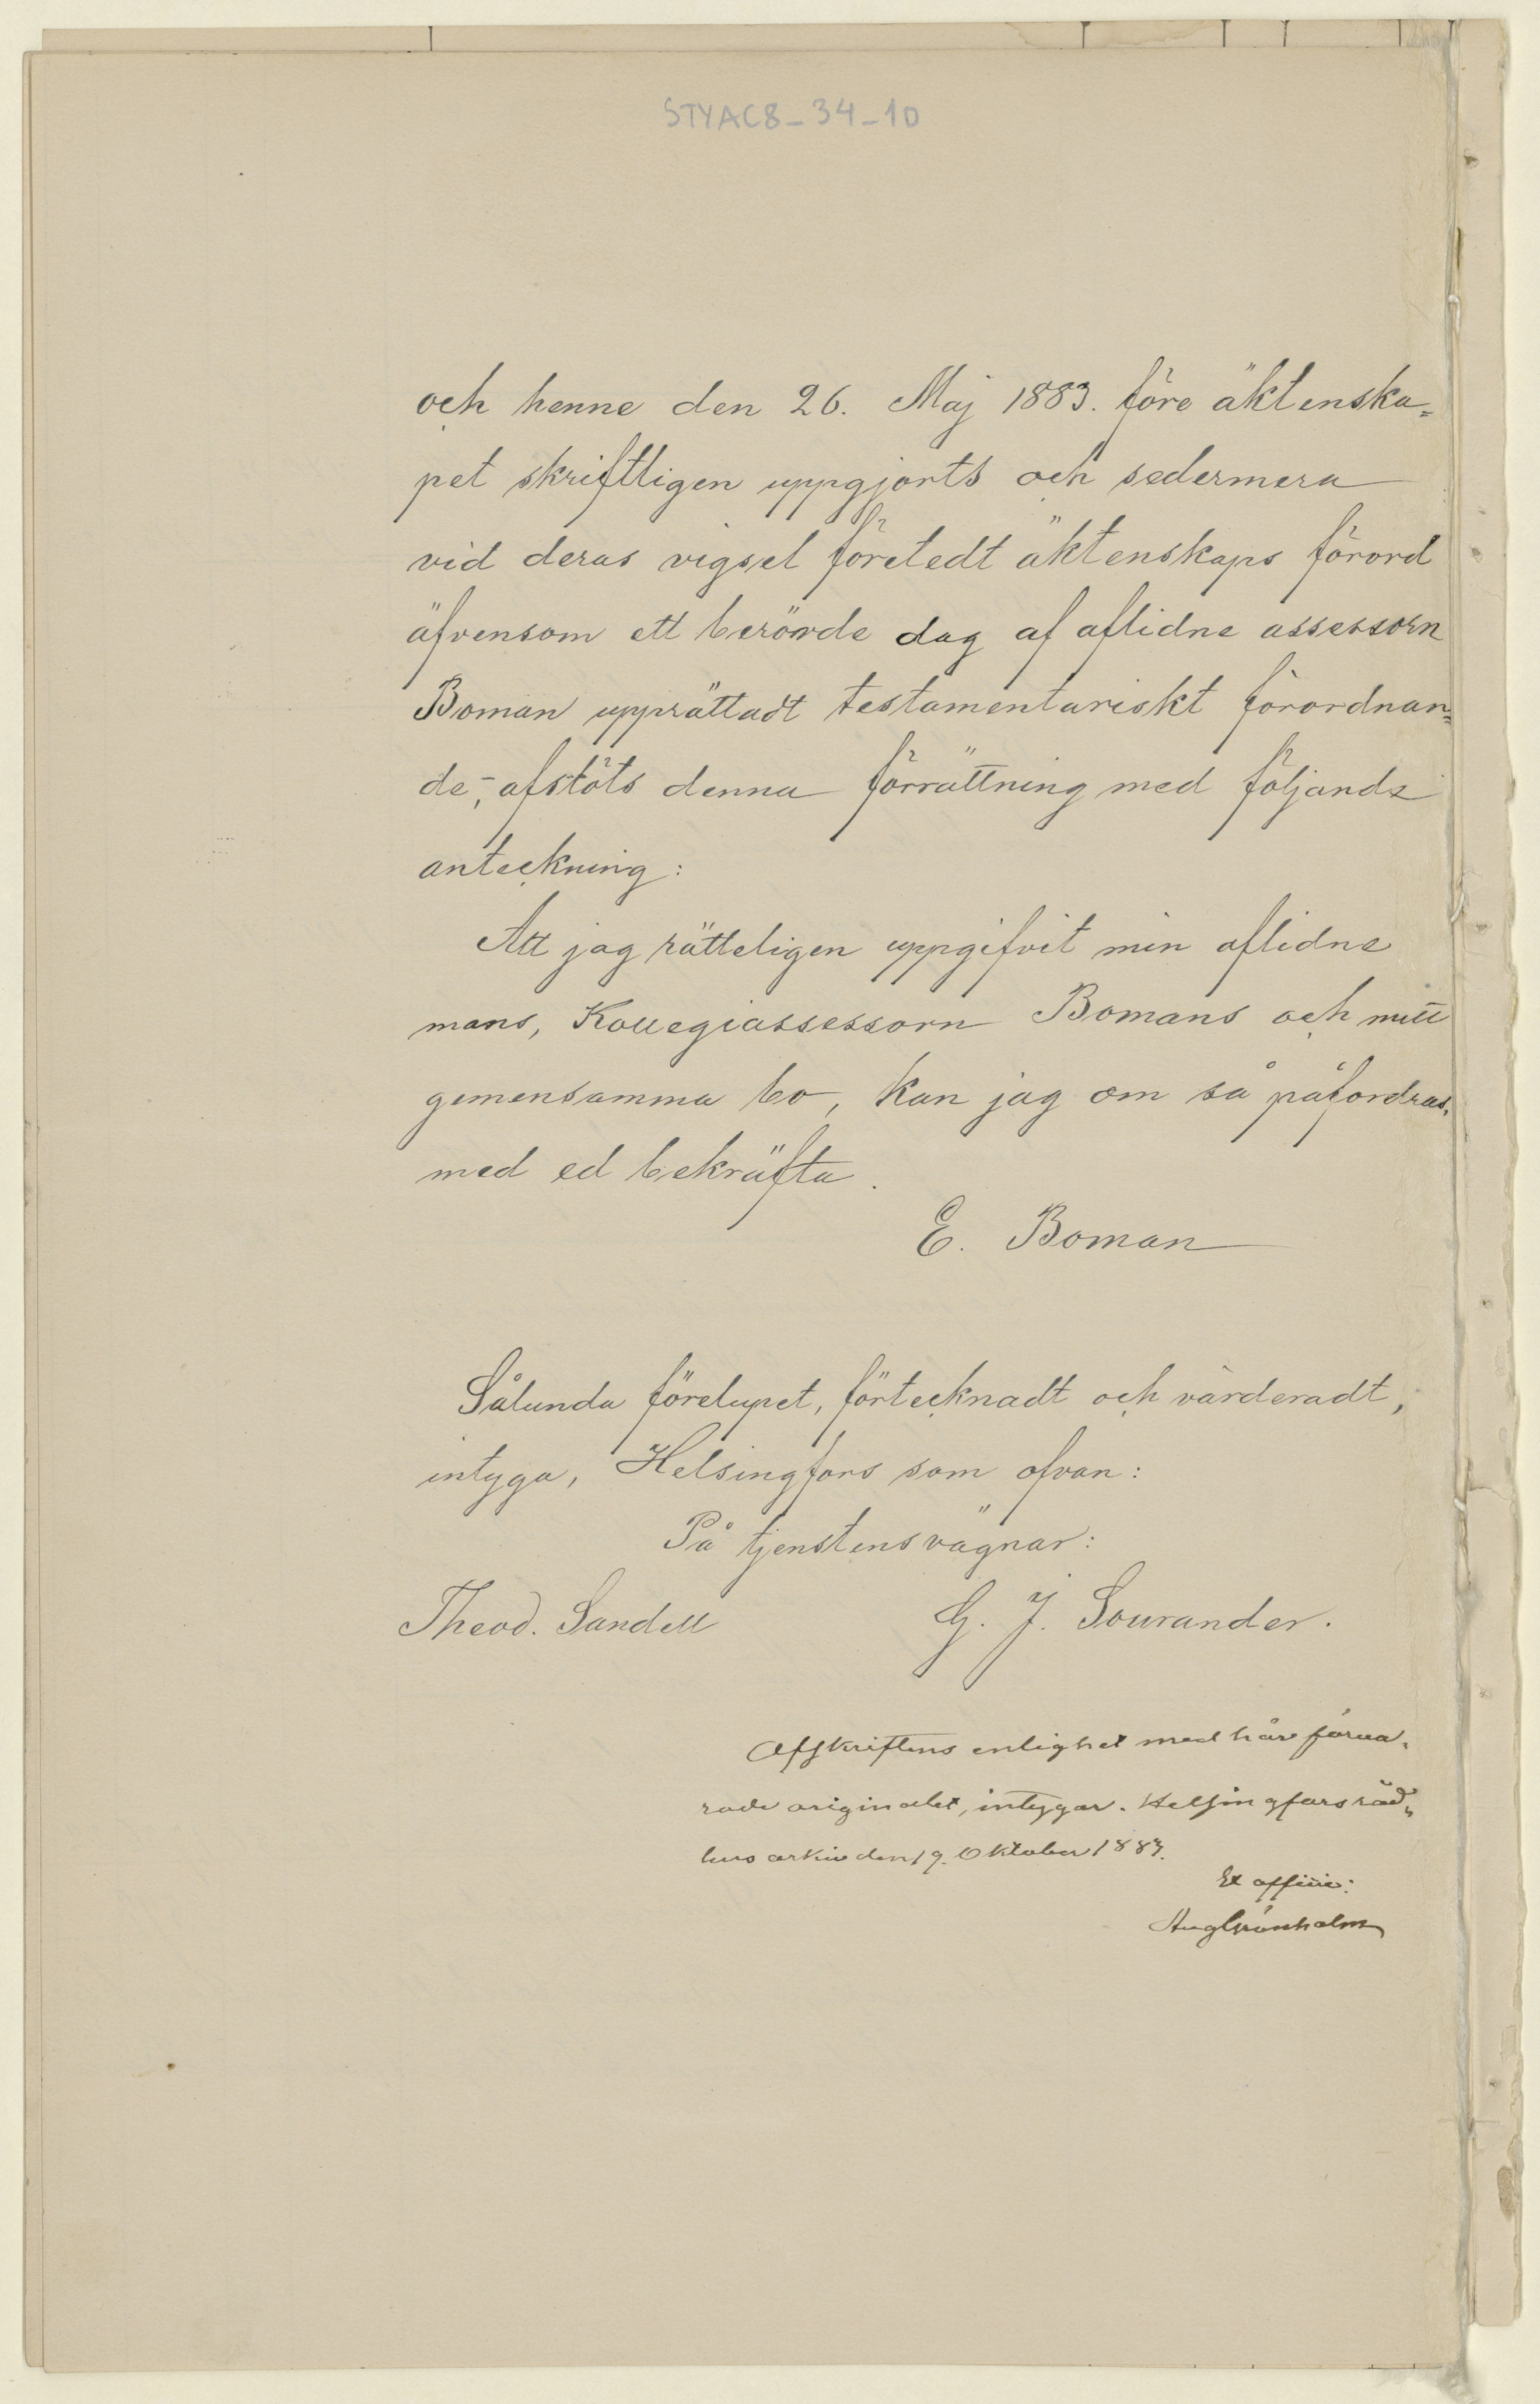 STYAC8_34_10
och henne den 26. Maj 1883. före äktenska=
pet skriftligen uppgjorts och sedermera
vid deras vigsel företedt äktenskaps förord
äfvensom ett berörde dag af aflidne assessorn
Boman upprättadt testamentariskt förordnan=
de;- afslöts denna förrättning med följande
anteckning:
Att jag rätteligen uppgifvit min aflidne
mans, Kollegiassessorn Bomans och mitt
gemensamma bo, kan jag om så påfordras,
med ed bekräfta.
E. Boman
Sålunda förelupet, förtecknadt och värderadt,
intyga, Helsingfors som ofvan:
På tjenstens vägnar:
Theod. Sandell G. J. Sourander.
Afskriftens enlighet med här förva-
rade originalet, intygar. Helsingfors råd-
hus arkiv den 19. Oktober 1883.
Ex officio:
Aug Grönholm